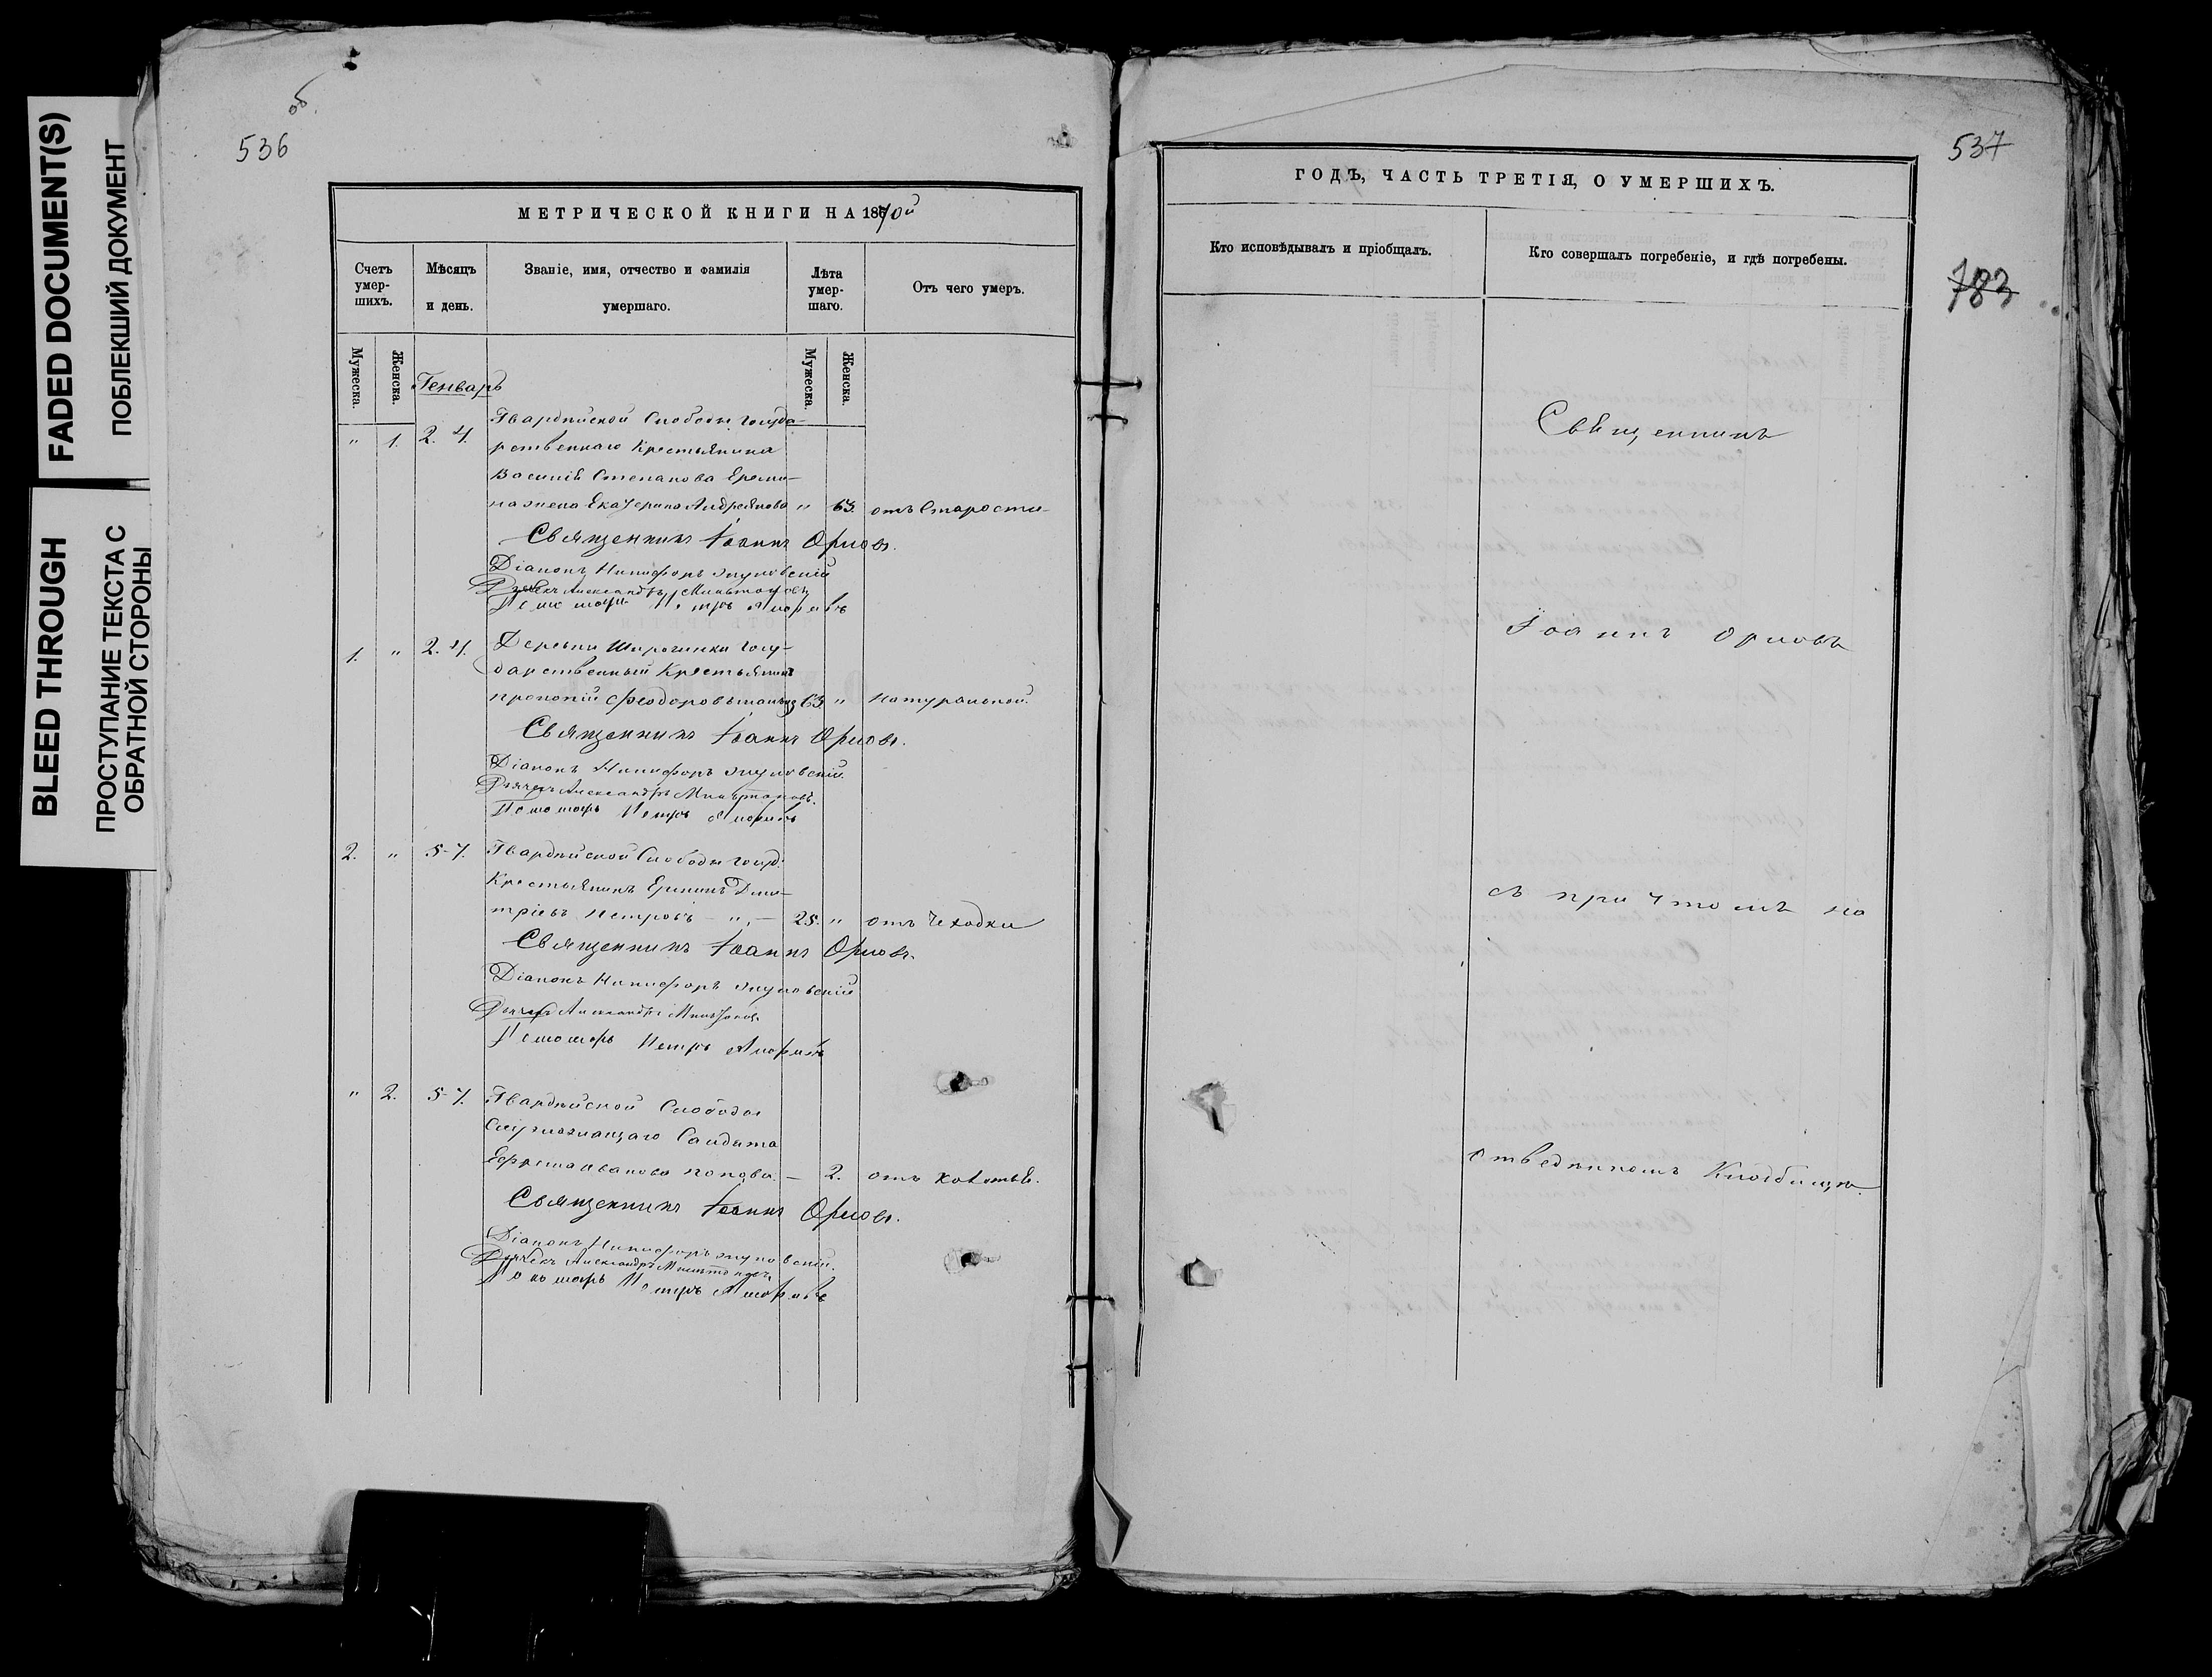 FADED DOCUMENT(S)
ПОБЛЕКШИЙ ДОКУМЕНТ
BLEED THROUGH
ПРОСТУПАНИЕ ТЕКСТА С
ОБРАТНОЙ СТОРОНЫ
об.
536
МЕТРИЧЕСКОЙ КНИГИ НА 1870й
Счетъ умер-шихъ.
Мѣсяцъ и день.
Званіе, имя, отчество и фамилія умершаго.
Лѣта умер-шаго.
Отъ чего умеръ.
Мужеска.
Женска.
Мужеска.
Женска.
Генварь
Гвардейской Слободы госуда-
" 1. 2. 4. рственнаго Крестьянина
Василія Степанова Ереми-
на жена Екатерина Андреянова " 63. отъ Старости
Священникъ Іоаннъ Орловъ.
Діаконъ Никифоръ
Дьячекъ Александръ Мильтоновъ
Пономарь Петръ
1. " 2. 4. Деревни Широчинки госу-
дарственный Крестьянинъ
Прокопій Феодоровъ 63. " натуральной.
Священникъ Іоаннъ Орловъ.
Діаконъ Никифоръ
Дьячекъ Александръ Мильтоновъ.
Пономарь Петръ
2. " 5. 7. Гвардейской Слободы госуд:
Крестьянинъ Дми-
тріевъ Петровъ — " — 25. " отъ Чеходки
Священникъ Іоаннъ Орловъ.
Діаконъ Никифоръ
Дьячекъ Александръ Мильтоновъ
Пономарь Петръ
" 2. 5. 7. Гвардейской Слободы
Солдата
Ефрема Иванова Попова — 2.
Священникъ Іоаннъ Орловъ.
Діаконъ Никифоръ
Дьячекъ Александръ Мильтоновъ
Пономарь Петръ
537
783
ГОДЪ, ЧАСТЬ ТРЕТІЯ, О УМЕРШИХЪ.
Кто исповѣдывалъ и пріобщалъ.
Кто совершалъ погребеніе, и гдѣ погребены.
Священникъ
Іоаннъ Орловъ
съ причтомъ на
отведенномъ Кладбищѣ.